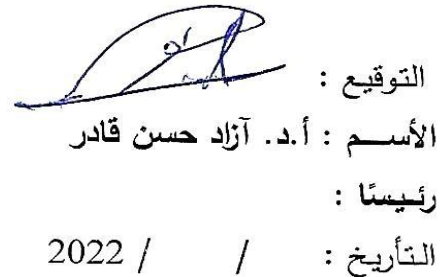 التوقيع :
الأســم : أ.د. آزاد حسن قادر
رئـيسًا :
التأريخ : / / 2022